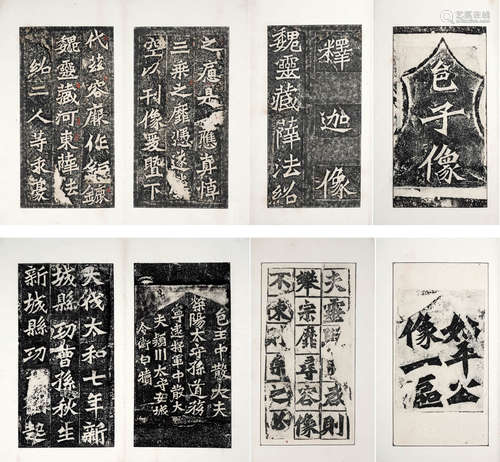 邑子像
釋迦像
魏靈藏薛法紹
之痼是應真悼
三乘之靡憑遂
空以刊像爰暨下
代茲容廓作鉅鹿
魏靈藏河東薛法
紹二人等求豪
始平公
像一區
夫靈則
攀宗靡尋容像
不陳則真之必
邑主中散大夫
滎陽太守孫道務
寧遠將軍中散大
夫潁川太守安城
令衛白犢
大代太和七年新
城縣功曹孫秋生
新城縣功劉起